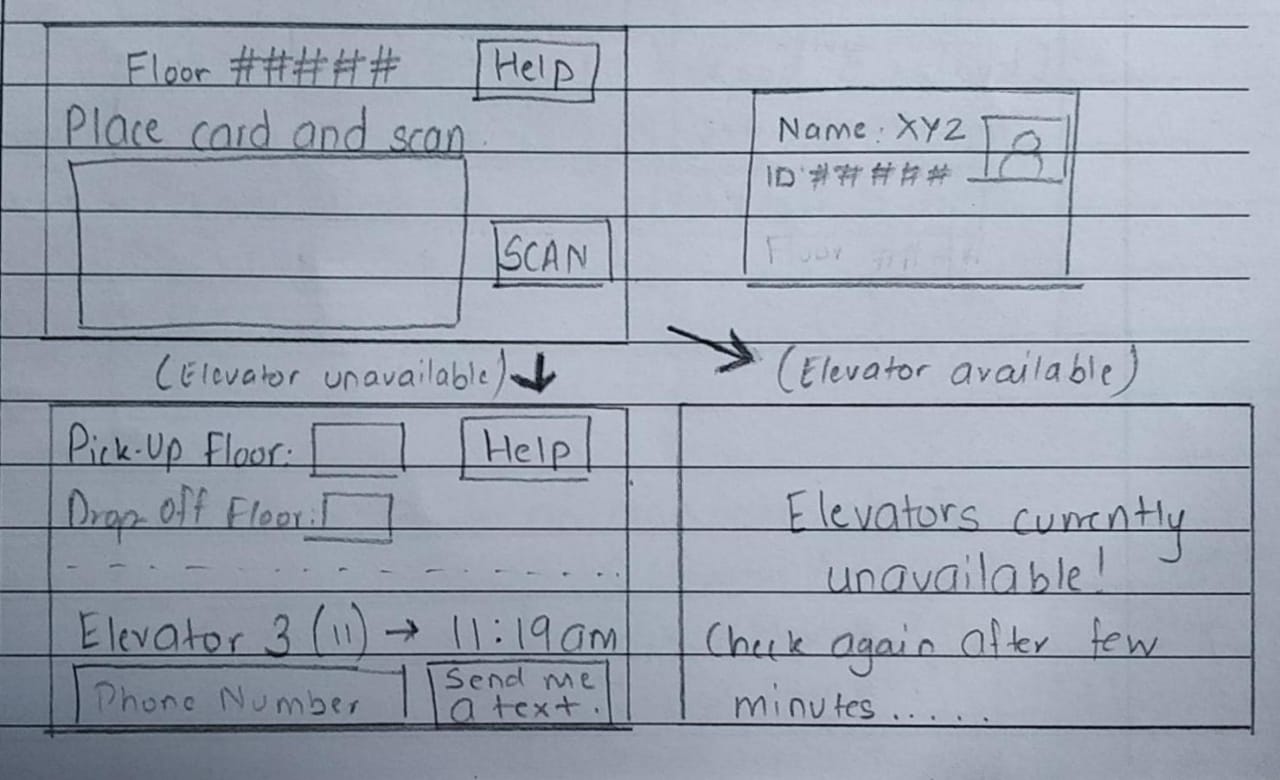 Floor ##### Help
Place card and scan.
SCAN
Name: XYZ
ID #####
Floor ####
(Elevator unavailable)
(Elevator available)
Pick-Up Floor: Help
Drop Off Floor:
Elevator 3 (11) → 11:19am
Phone Number
Send me
a text.
Elevators currently
unavailable!
Check again after few
minutes.....